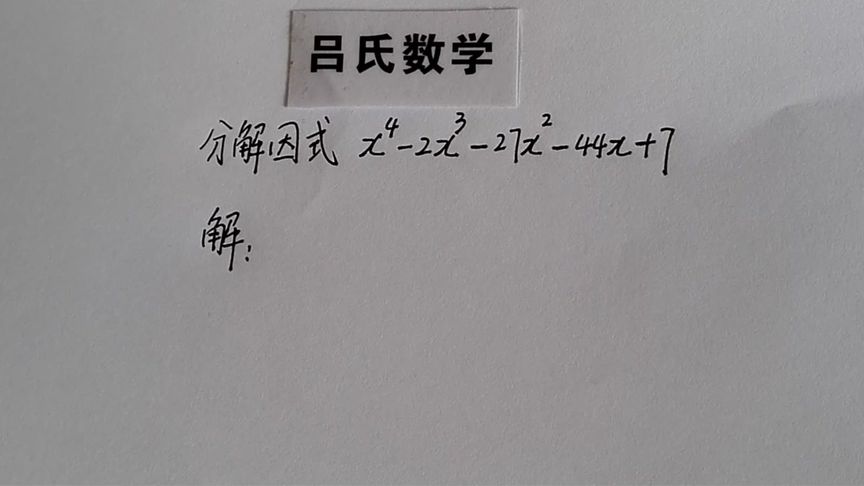 吕氏数学
分解因式 x⁴-2x³-27x²-44x+7
解: